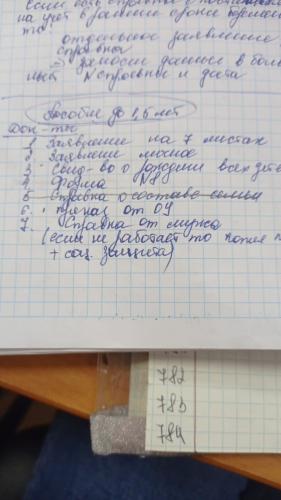 Если есть справка о постановке
на учёт в ранние сроки
то:
отдельное заявление
справка
→ вносим данные в боль
ный N справки и дата
Пособие до 1,5 лет
Док-ты
1. Заявление на 7 листах
2. Заявление личное
3. Свид-во о рождении всех дете
4. Форма N8
5. Справка о составе семьи
6. приказ от ОУ
7. Справка от мужа
(если не работает то копия
+ соц. защита)
782
783
784